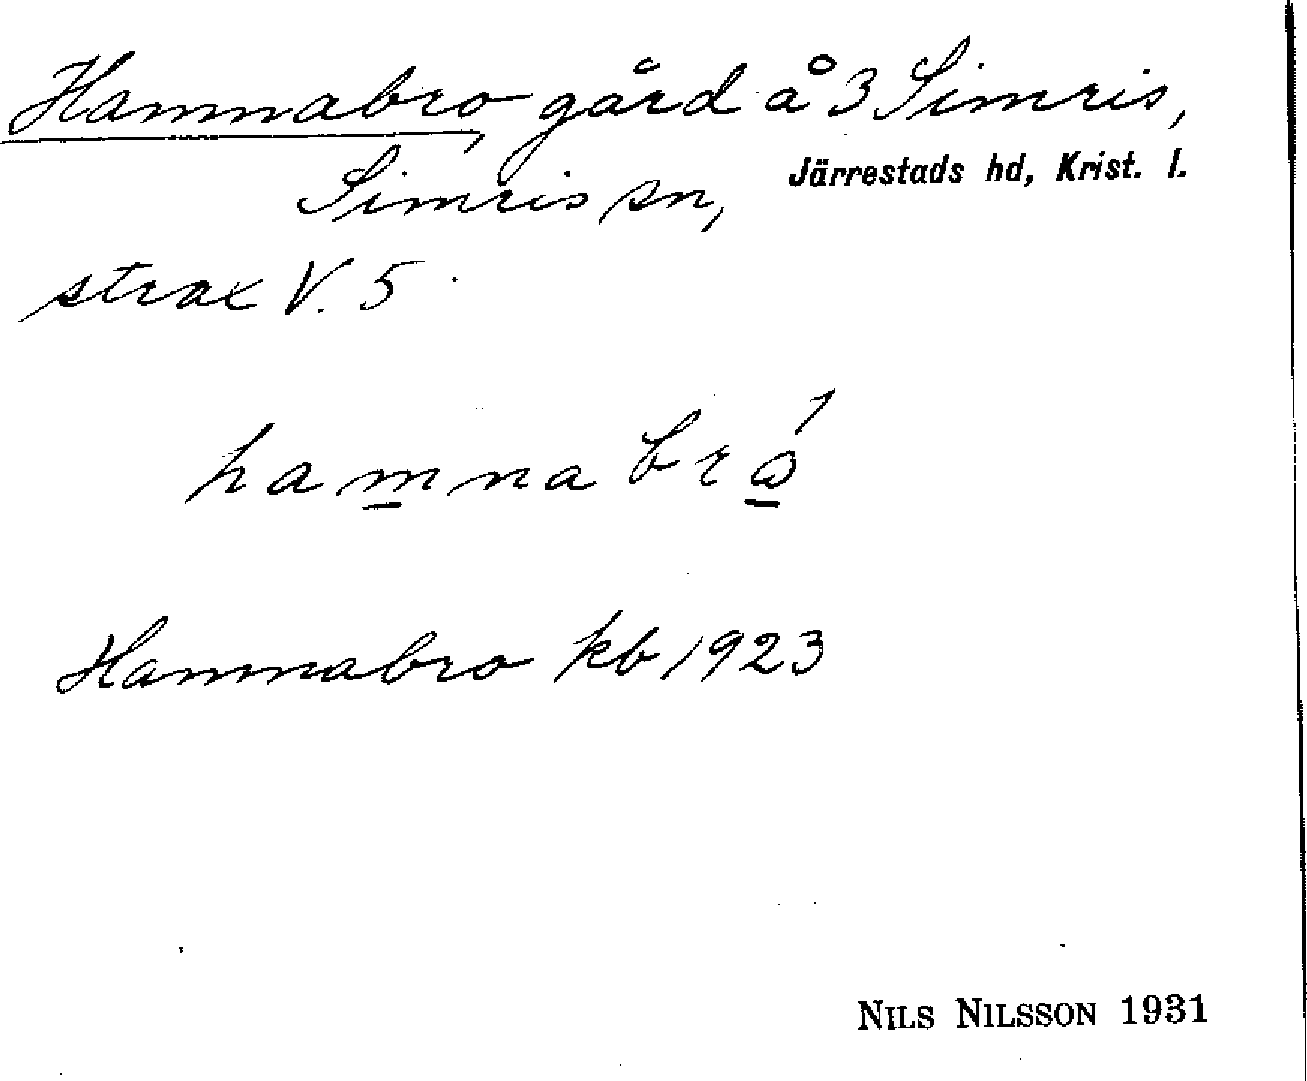 Hamnabro, gård å 3 Simris,
Simris sn, Järrestads hd, Krist. l.
strax V. 5
hamnabró
Hamnabro kb 1923
NILS NILSSON 1931